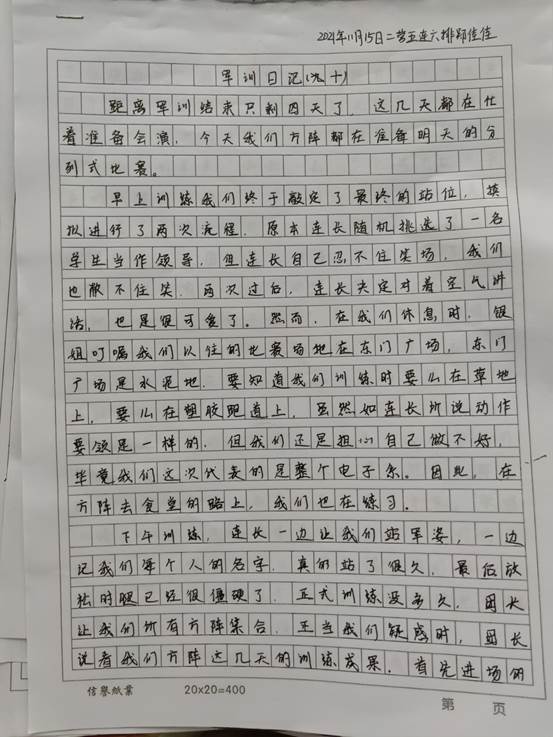 2021年11月15日二营五连六排郑佳佳
军训日记(九十)
距离军训结束只剩四天了，这几天都在忙
着准备会演，今天我们方阵都在准备明天的分
列式比赛。
早上训练我们终于敲定了最终的站位，模
拟进行了两次流程，原本连长随机挑选了一名
学生当作领导，但连长自己忍不住笑场，我们
也憋不住笑，两次过后，连长决定对着空气讲
话，也是很可爱了。然而，在我们休息时，银
姐叮嘱我们以往的比赛场地在东门广场，东门
广场是水泥地，要知道我们训练时要么在草地
上，要么在塑胶跑道上，虽然如连长所说动作
要领是一样的，但我们还是担心自己做不好，
毕竟我们这次代表的是整个电子系。因此，在
方阵去食堂的路上，我们也在练习。
下午训练，连长一边让我们站军姿，一边
记我们每个人的名字，真的站了很久，最后放
松时腿已经很僵硬了，正式训练没多久，团长
让我们所有方阵集合，正当我们疑惑时，团长
说看我们方阵这几天的训练成果，首先进场的
信誉紙業
20×20=400
第 页